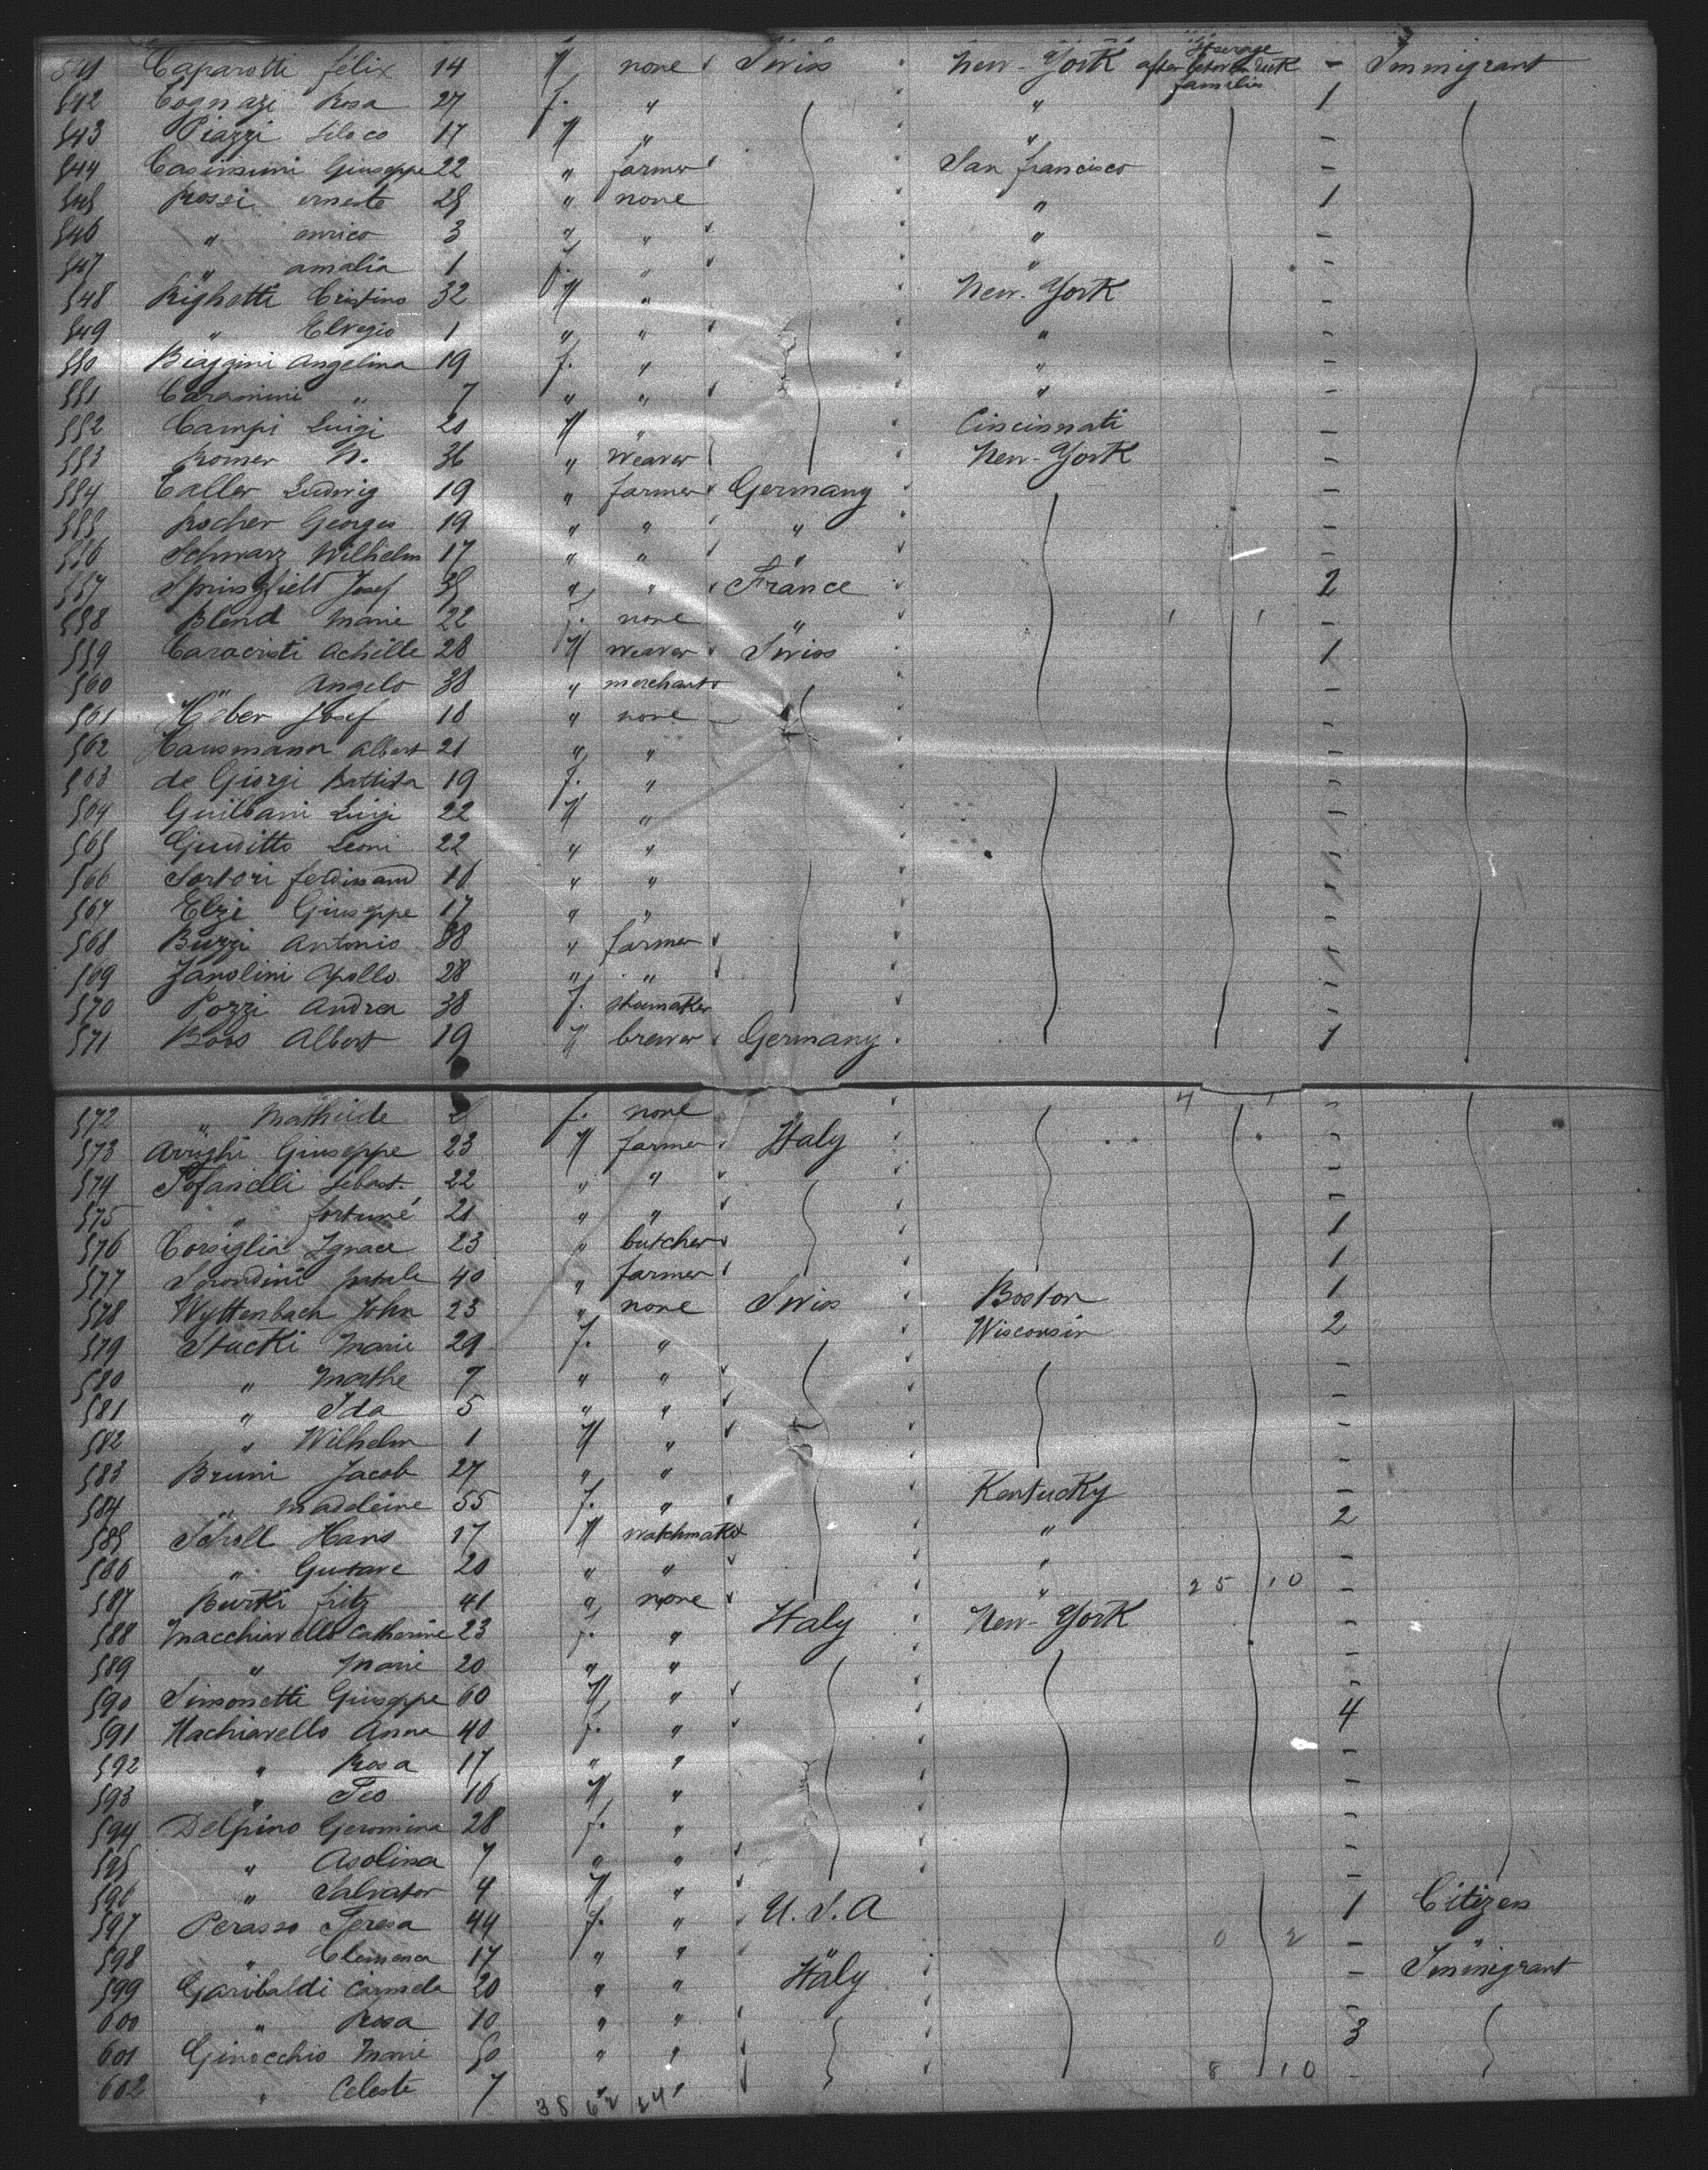 541 Caparotti félix 14 M none Swiss New-York Steerage after between deck families - Immigrant
542 Cognazi Rosa 27 f. " " 1
543 Piazzi 17 M " " -
544 Giuseppe 22 " farmer San francisco -
545 Rossi erneste " none " 1
546 " enrico 3 " " " -
547 " amalia 1 f. " " -
548 Righetti Cristino 32 M " New-York -
549 " Elvegio 1 " " " -
550 Biaggini Angelina 19 f. " " -
551 Caramini " 7 " " " -
552 Campi Luigi M " Cincinnati -
553 Romer N. 36 " Weaver New-York -
554 Caller Ludwig 19 " farmer Germany -
555 Rocher Georges 19 " " " -
556 Schwarz Wilhelm 17 " " " -
557 Josef " " France 2
558 Blend Marie 22 f. none " -
559 Caracristi Achille 28 M weaver Swiss 1
560 " Angelo 38 " merchant -
561 Haber Josef 18 " none -
562 Hausmann Albert 21 " " -
563 de Giorgi Battista 19 f. " -
564 Luigi 22 M " -
565 Giuditto Leoni 22 " "
566 Sartori ferdinand " "
567 Elzi Giuseppe 17 " " -
568 Buzzi Antonio 38 " farmer
569 Zanolini Apollo 28 " "
570 Pozzi Andrea 38 f. shoemaker -
571 Boos Albert 19 M brewer Germany 1
572 " Mathilde f. none " -
573 Arrighi Giuseppe 23 M farmer Italy -
574 Sebast. 22 " " -
575 " fortuné 21 " " -
576 Corsiglia Ignace 23 " butcher 1
577 40 " farmer 1
578 Wyttenbach John 23 " none Swiss Boston 1
579 Stucki Marie 29 f. " Wisconsin 2
580 " Marthe 7 " " -
581 " Ida 5 " " -
582 " Wilhelm 1 M " -
583 Bruni Jacob 27 " " -
584 " Madeleine 55 f. " Kentucky -
585 Scholl Hans 17 M watchmaker " 2
586 " Gustave 20 " " " -
587 Burki fritz 41 " none " 25 10 -
588 Macchiavello Catherine 23 f. " Italy New-York -
589 " Marie 20 " " -
590 Simonetti Giuseppe 60 M " -
591 Machiavello Anna 40 f. " 4
592 " Rosa 17 " " -
593 " 10 M " -
594 Delpino Geromina 28 f. " -
595 " Asolina 7 " " -
596 " Salvator 4 M " -
597 Perasso Teresa 44 f. " U.S.A 1 Citizen
598 " Clemenca 17 " " " 0 2 - "
599 Garibaldi Carmela 20 " " Italy - Immigrant
600 " Rosa 10 " " -
601 Ginocchio Marie 50 " " 3
602 " Celeste 7 " " 8 10 -
38 62 24